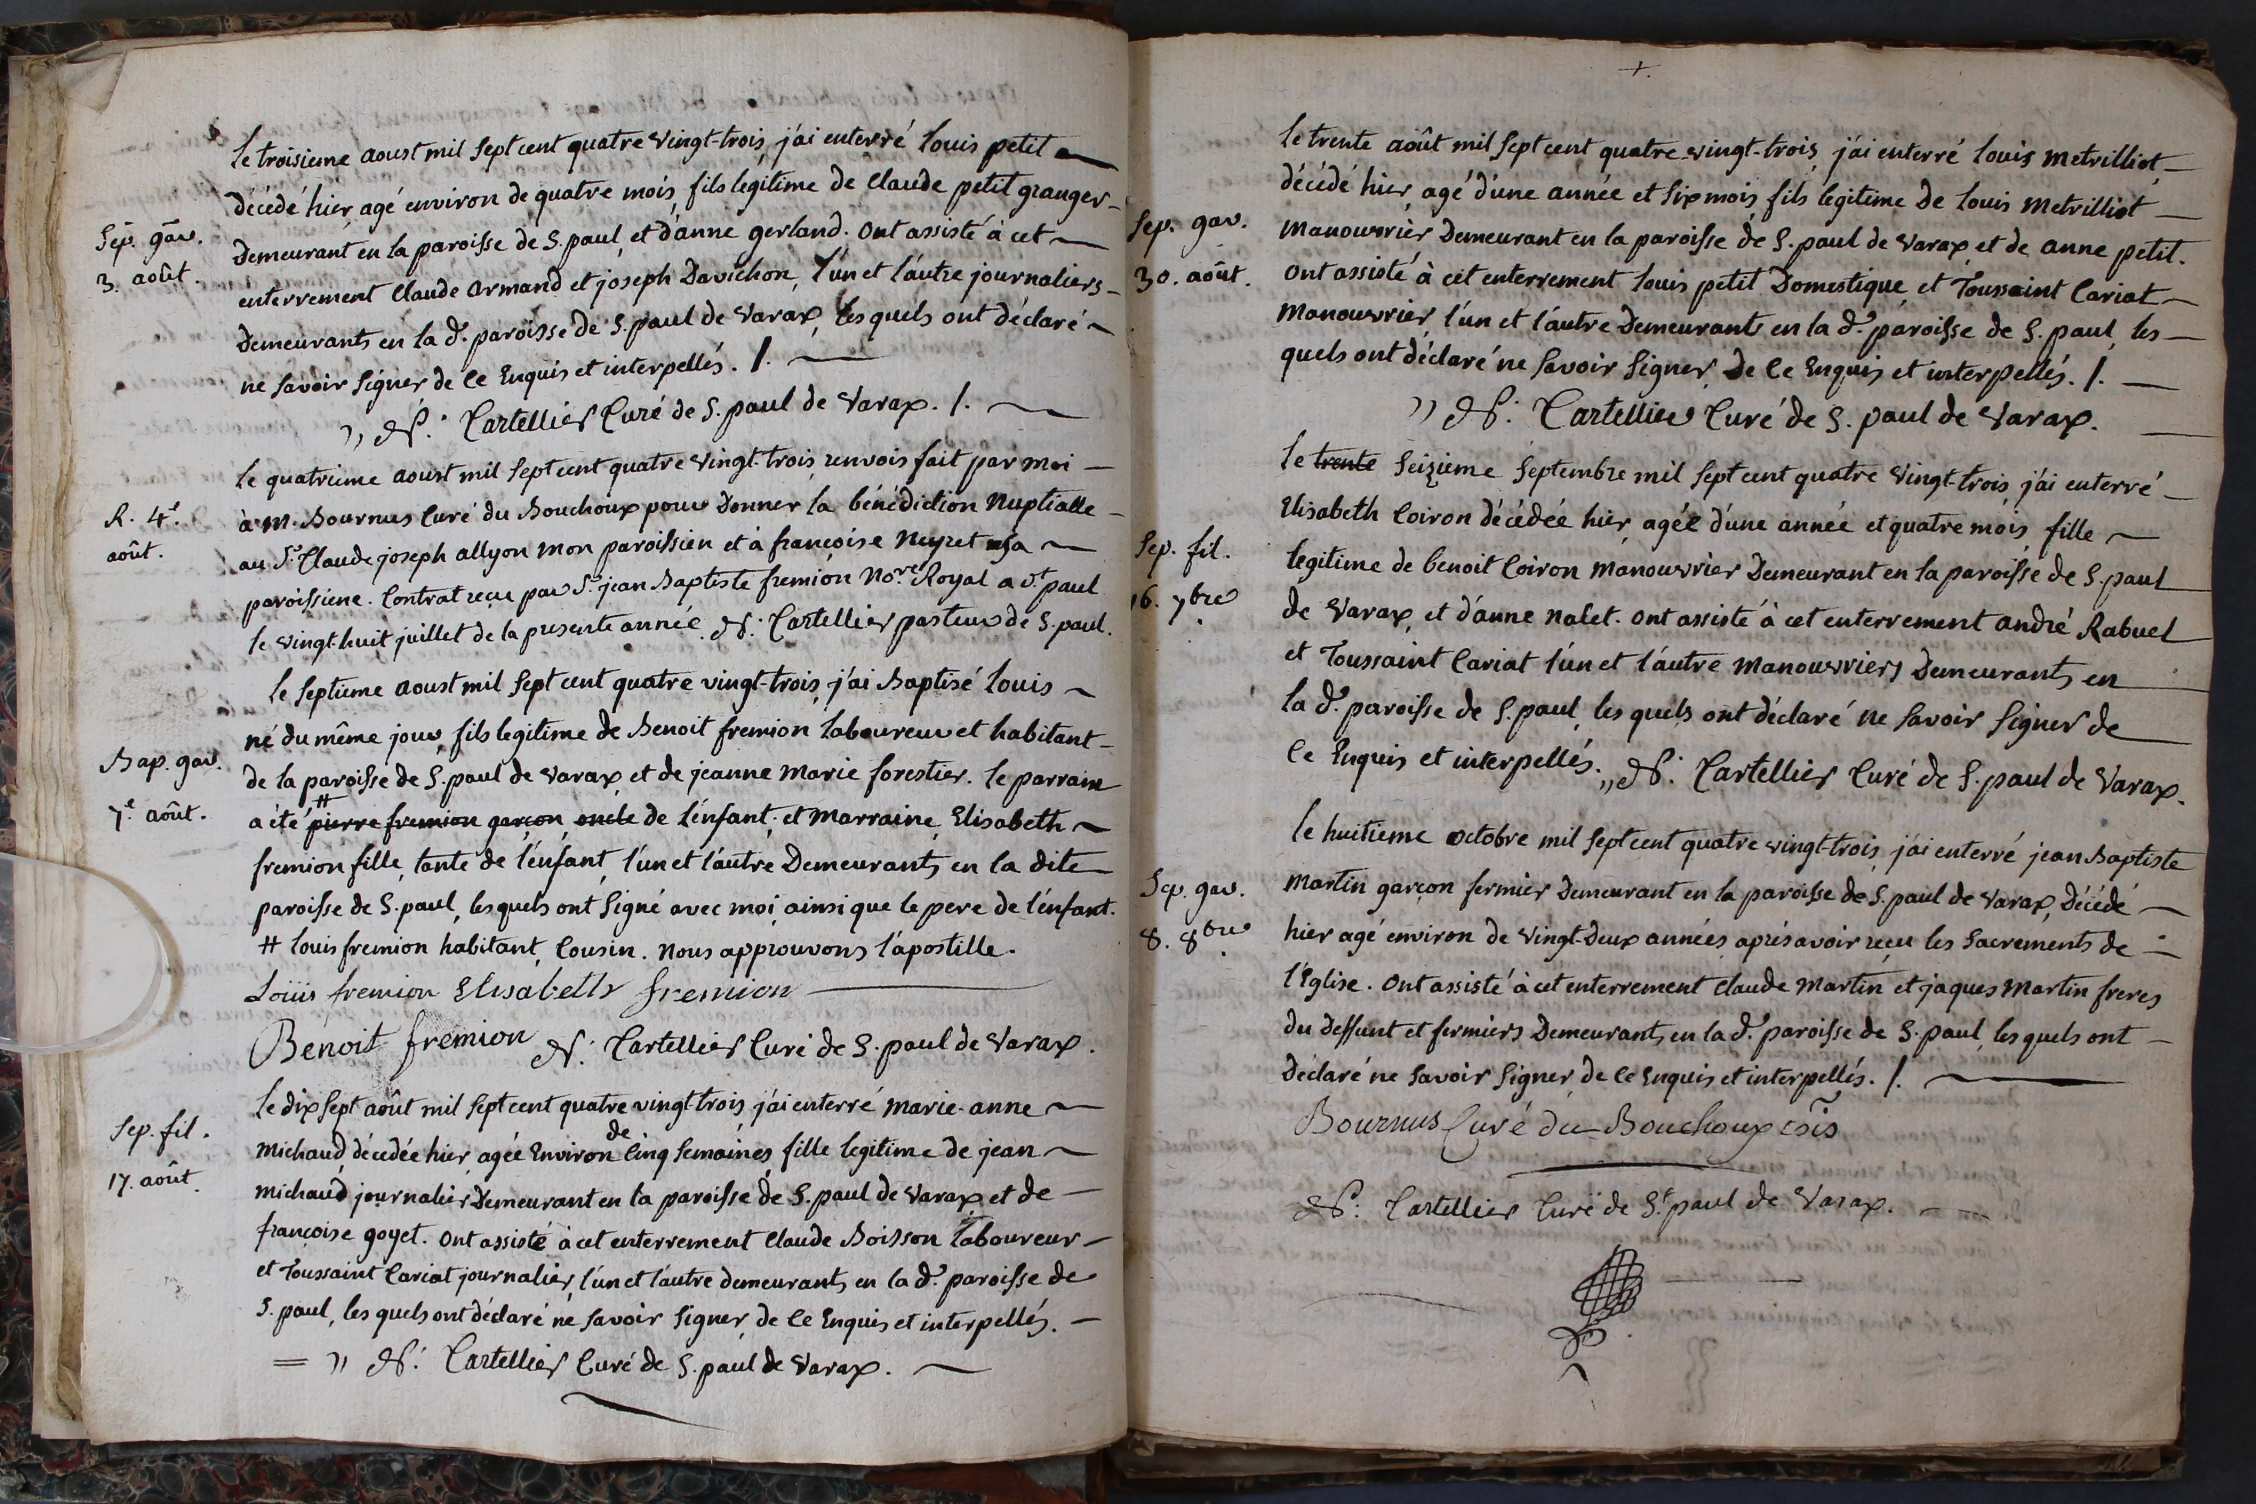 le troisieme aoust mil sept cent quatre vingt-trois, j'ai enterré louis petit
décédé hier, agé environ de quatre mois, fils legitime de claude petit granger
Sep. gar.
demeurant en la paroisse de S. paul, et d'anne gerland. ont assisté à cet
3. août.
enterrement claude armand et joseph Davichon, l'un et l'autre journaliers
demeurants en la d. paroisse de S. paul de varax, les quels ont déclaré
ne savoir signer de ce enquis et interpellés. /.
N: Cartellier Curé de S. paul de varax. /.
le quatrieme aoust mil sept cent quatre vingt-trois renvois fait par moi
R. 4e.
à M. Bournus curé du Bouchoux pour donner la bénédiction nuptialle
août.
au Sr. Claude joseph allyon mon paroissien et à françoise neyret sa
paroissiene. contrat reçu par Sr. jean Baptiste fremion No.re Royal a St. paul
le vingt-huit juillet de la presente année. N: Cartellier pasteur de S. paul.
le septieme aoust mil sept cent quatre vingt-trois, j'ai Baptisé louis
né du même jour, fils legitime de Benoit fremion laboureur et habitant
Bap. gar.
de la paroisse de S. paul de varax, et de jeanne marie forestier. le parrain
7e. août.
a été # pierre fremion garçon oncle de l'enfant et marraine, Elisabeth
fremion fille, tante de l'enfant, l'un et l'autre demeurants en la dite
paroisse de S. paul, les quels ont signé avec moi, ainsi que le pere de l'enfant.
# louis fremion habitant, cousin. nous approuvons l'apostille.
Loüis fremion Elisabeth fremion
Benoit fremion N: Cartellier Curé de S. paul de varax.
le dix sept août mil sept cent quatre vingt-trois j'ai enterré marie-anne
Sep. fil.
michaud, décédée hier, agée environ de cinq semaines, fille legitime de jean
17. août.
michaud journalier demeurant en la paroisse de S. paul de varax et de
françoise goyet. ont assisté à cet enterrement claude Boisson laboureur
et toussaint cariat journalier, l'un et l'autre demeurants en la d. paroisse de
S. paul, les quels ont déclaré ne savoir signer, de ce enquis et interpellés.
= N: Cartellier Curé de S. paul de varax.
+.
le trente août mil sept cent quatre-vingt-trois, j'ai enterré louis metrilliot
décédé hier, agé d'une année et six mois, fils legitime de louis metrilliot
Sep. gar.
manouvrier demeurant en la paroisse de S. paul de varax, et de anne petit.
30. août.
ont assisté à cet enterrement louis petit domestique, et Toussaint Cariat
manouvrier, l'un et l'autre demeurants en la d. paroisse de S. paul, les
quels ont déclaré ne savoir signer, de ce enquis et interpellés. /.
N: Cartellier Curé de S. paul de varax.
le trente seizieme septembre mil sept cent quatre vingt-trois, j'ai enterré
Elisabeth Coiron décédée hier, agée d'une année et quatre mois, fille
Sep. fil.
legitime de benoit Coiron manouvrier demeurant en la paroisse de S. paul
16. 7bre.
de varax, et d'anne nalet. ont assisté à cet enterrement andré Rabuel
et Toussaint Cariat l'un et l'autre manouvriers demeurants en
la d. paroisse de S. paul, les quels ont déclaré ne savoir signer de
ce enquis et interpellés. N: Cartellier Curé de S. paul de varax.
le huitieme octobre mil sept cent quatre vingt-trois j'ai enterré jean Baptiste
Sep. gar.
martin garçon fermier demeurant en la paroisse de S. paul de varax, décédé
8. 8bre.
hier agé environ de vingt-deux années, après avoir reçu les sacrements de
l'Eglise. ont assisté à cet enterrement claude martin et jaques martin freres
du deffunt et fermiers demeurants en la d. paroisse de S. paul, les quels ont
déclaré ne savoir signer, de ce enquis et interpellés. /.
Bournus Curé du Bouchoux
N: Cartellier Curé de St. paul de varax.